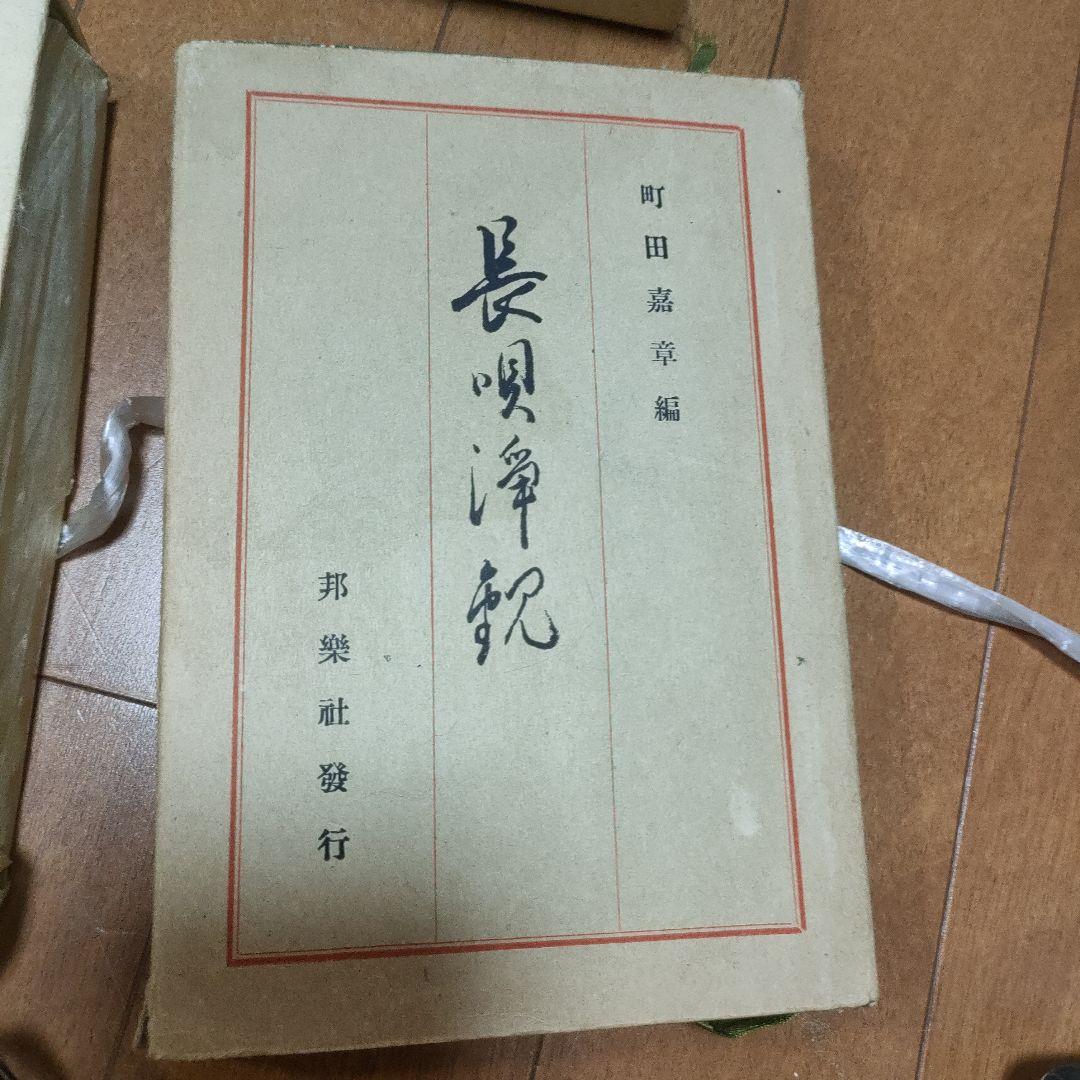 町田嘉章編
長唄浄観
邦樂社發行